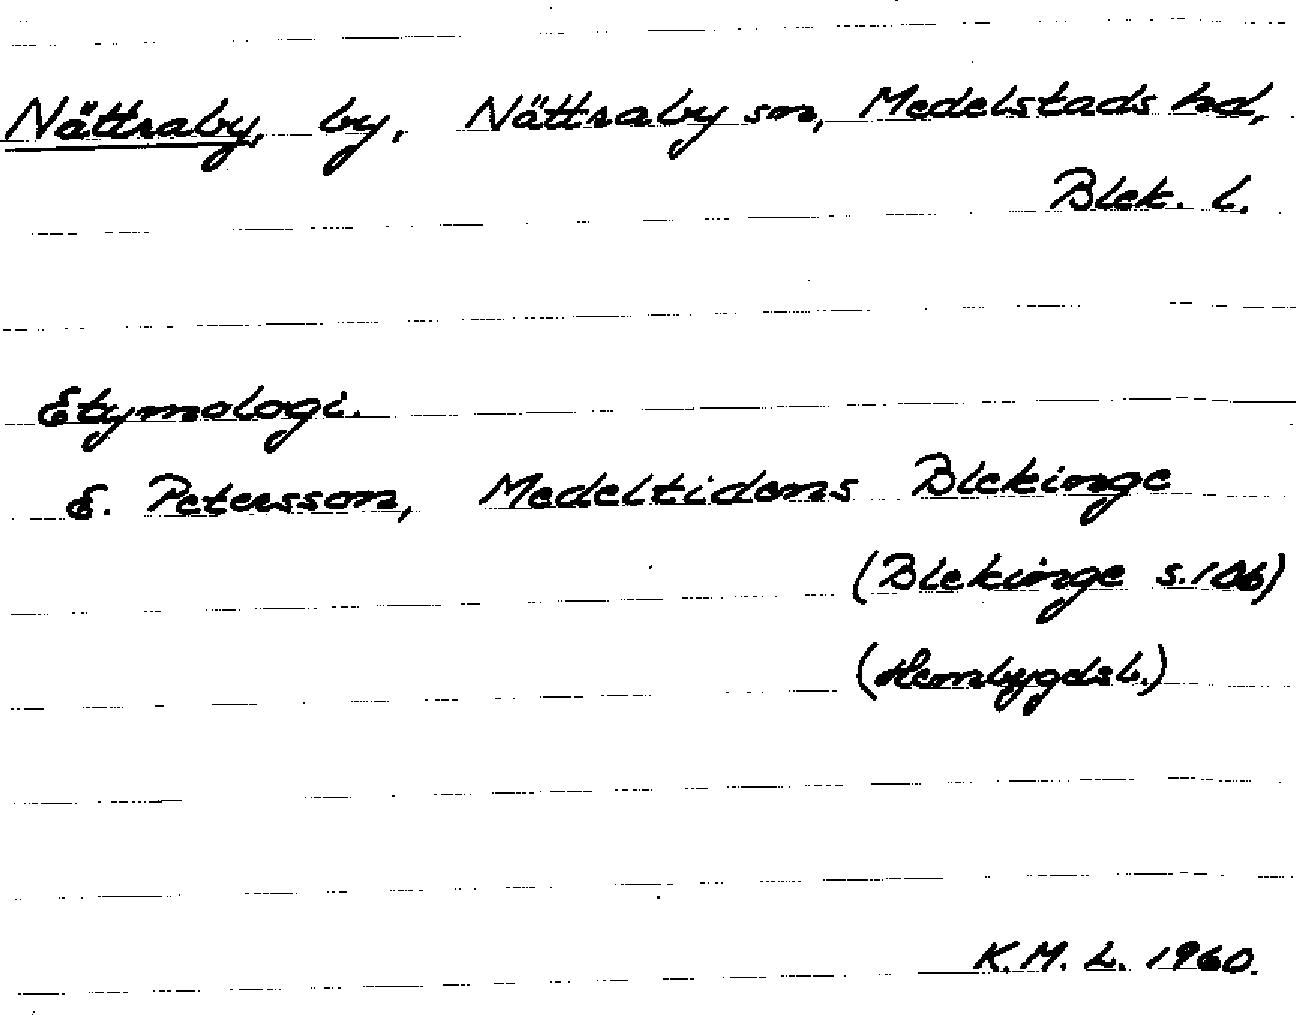 Nättraby, by, Nättraby sn, Medelstads hd,
Blek. l.
Etymologi.
E. Petersson, Medeltidens Blekinge
(Blekinge s.106)
(Hembygdsb.)
K.M.L. 1960.